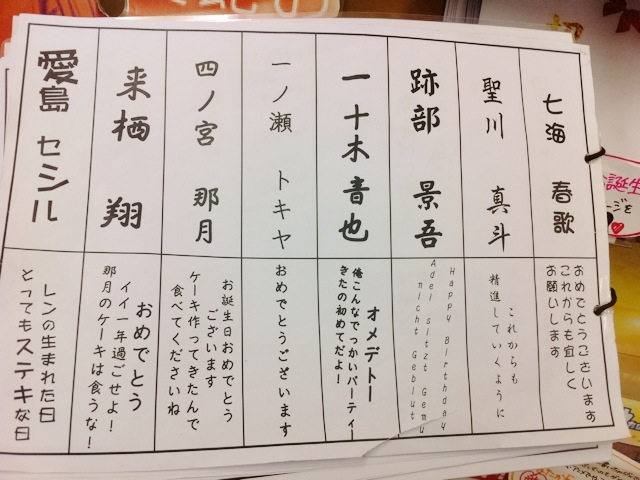 七海 春歌
おめでとうございます
これからも宜しく
お願いします
聖川 真斗
これからも
精進していくように
跡部 景吾
Happy Birthday
Adel sitzt Gemu
nicht Geblut
一十木 音也
オメデトー
俺こんなでっかいパーティー
きたの初めてだよ!
一ノ瀬 トキヤ
おめでとうございます
四ノ宮 那月
お誕生日おめでとう
ございます
ケーキ作ってきたんで
食べてくださいね
来栖 翔
おめでとう
イイ一年過ごせよ!
那月のケーキは食うな!
愛島 セシル
レンの生まれた日
とってもステキな日
誕生
ージを